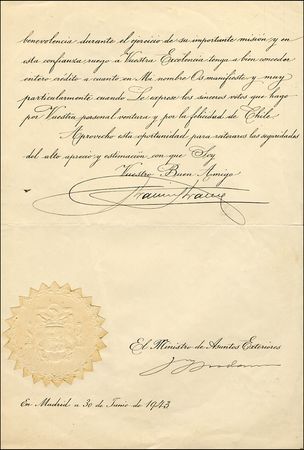 benevolencia durante el ejercicio de su importante misión y en
esta confianza ruego a Vuestra Excelencia tenga a bien conceder
entero crédito a cuanto en Mi nombre Os manifieste y muy
particularmente cuando Le exprese los sinceros votos que hago
por Vuestra personal ventura y por la felicidad de Chile.
Aprovecho esta oportunidad para reiteraros las seguridades
del alto aprecio y estimación con que Soy
Vuestro Buen Amigo
El Ministro de Asuntos Exteriores
En Madrid a 30 de Junio de 1943